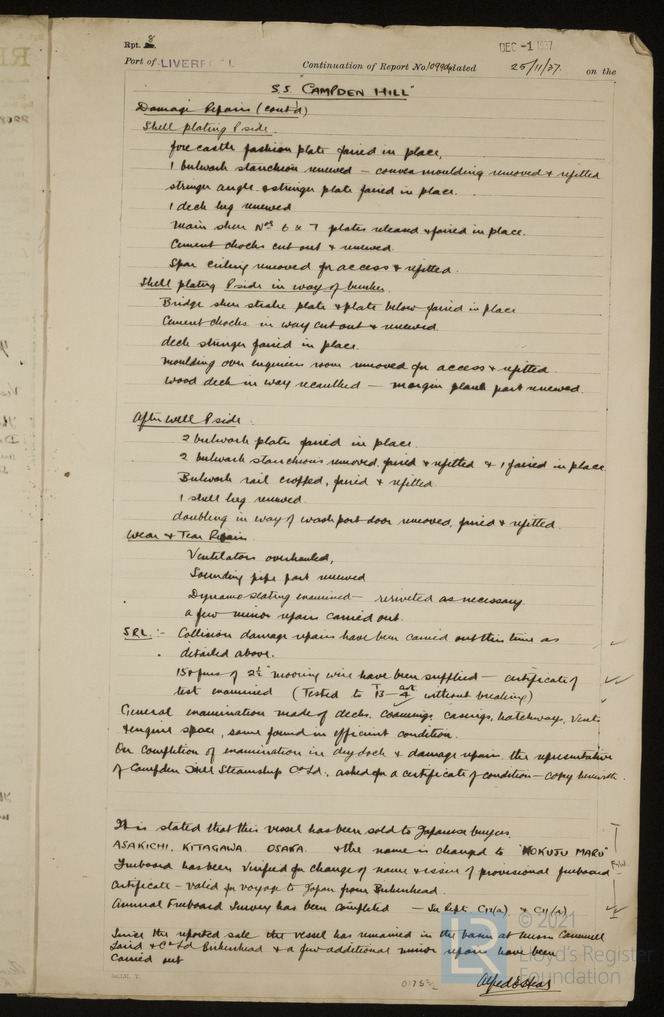 Rpt. 8.
DEC -1 1937
Port of LIVERPOOL Continuation of Report No. dated 25/11/37. on the
S.S. "CAMPDEN HILL"
Damage Repairs (cont'd)
Shell plating P side.
fore castle fashion plate faired in place,
1 bulwark stanchion renewed - convex moulding removed & refitted
stringer angle & stringer plate faired in place.
1 deck lug renewed
Main sheer Nos 6 & 7 plates released & faired in place.
Cement chocks cut out & renewed.
Spar ceiling removed for access & refitted.
Shell plating P side in way of bunker.
Bridge sheer strake plate & plate below faired in place
Cement chocks in way cut out & renewed
deck stringer faired in place.
moulding over engineers room removed for access & refitted.
wood deck in way recaulked - margin plank part renewed.
After well P side.
2 bulwark plates faired in place.
2 bulwark stanchions removed, faired & refitted & 1 faired in place
Bulwark rail cropped, faired & refitted
1 shell lug renewed
doubling in way of wash port door removed, faired & refitted.
Wear & Tear Repairs.
Ventilators overhauled,
Sounding pipe part renewed
Dynamo seating examined - reriveted as necessary
a few minor repairs carried out.
SRL :- Collision damage repairs have been carried out this time as
detailed above.
150 fms of 2½" mooring wire have been supplied - certificate of
test examined (Tested to 13 without breaking)
General examination made of decks, coamings, casings, hatchways, vents
& engine space, same found in efficient condition.
On completion of examination in dry dock & damage repairs the representative
of Campden Hill Steamship Co Ld., asked for a certificate of condition - copy herewith.
It is stated that this vessel has been sold to Japanese buyers
ASAKICHI. KITAGAWA. OSAKA. & the name is changed to "HOKUJU MARU"
Freeboard has been verified for change of name & issue of provisional freeboard
certificate - valid for voyage to Japan from Birkenhead.
Annual Freeboard Survey has been completed - See Rept. C12(a) & C11(a)
Since the reported sale the vessel has remained in the basin at Messrs Cammell
Laird & Co Ld Birkenhead & a few additional minor repairs have been
carried out
© 2021
Lloyd's Register
Foundation
LR